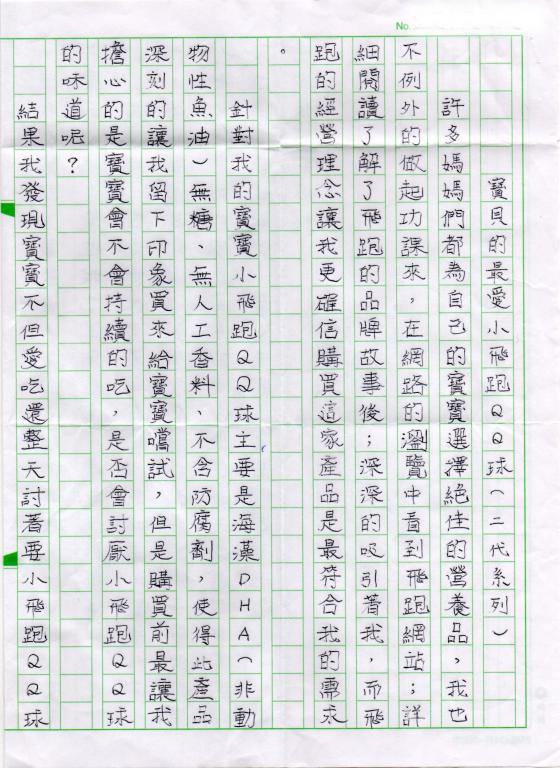 No.
寶貝的最愛小飛跑QQ球(二代系列)
許多媽媽們都為自己的寶寶選擇絕佳的營養品,我也
不例外的做起功課來,在網路的瀏覽中看到飛跑網站;詳
細閱讀了解了飛跑的品牌故事後;深深的吸引著我,而飛
跑的經營理念讓我更確信購買這家產品是最符合我的需求
。
針對我的寶寶小飛跑QQ球主要是海藻DHA(非動
物性魚油)無糖、無人工香料、不含防腐劑,使得此產品
深刻的讓我留下印象買來給寶寶嚐試,但是購買前最讓我
擔心的是寶寶會不會持續的吃,是否會討厭小飛跑QQ球
的味道呢?
結果我發現寶寶不但愛吃還整天討著要小飛跑QQ球